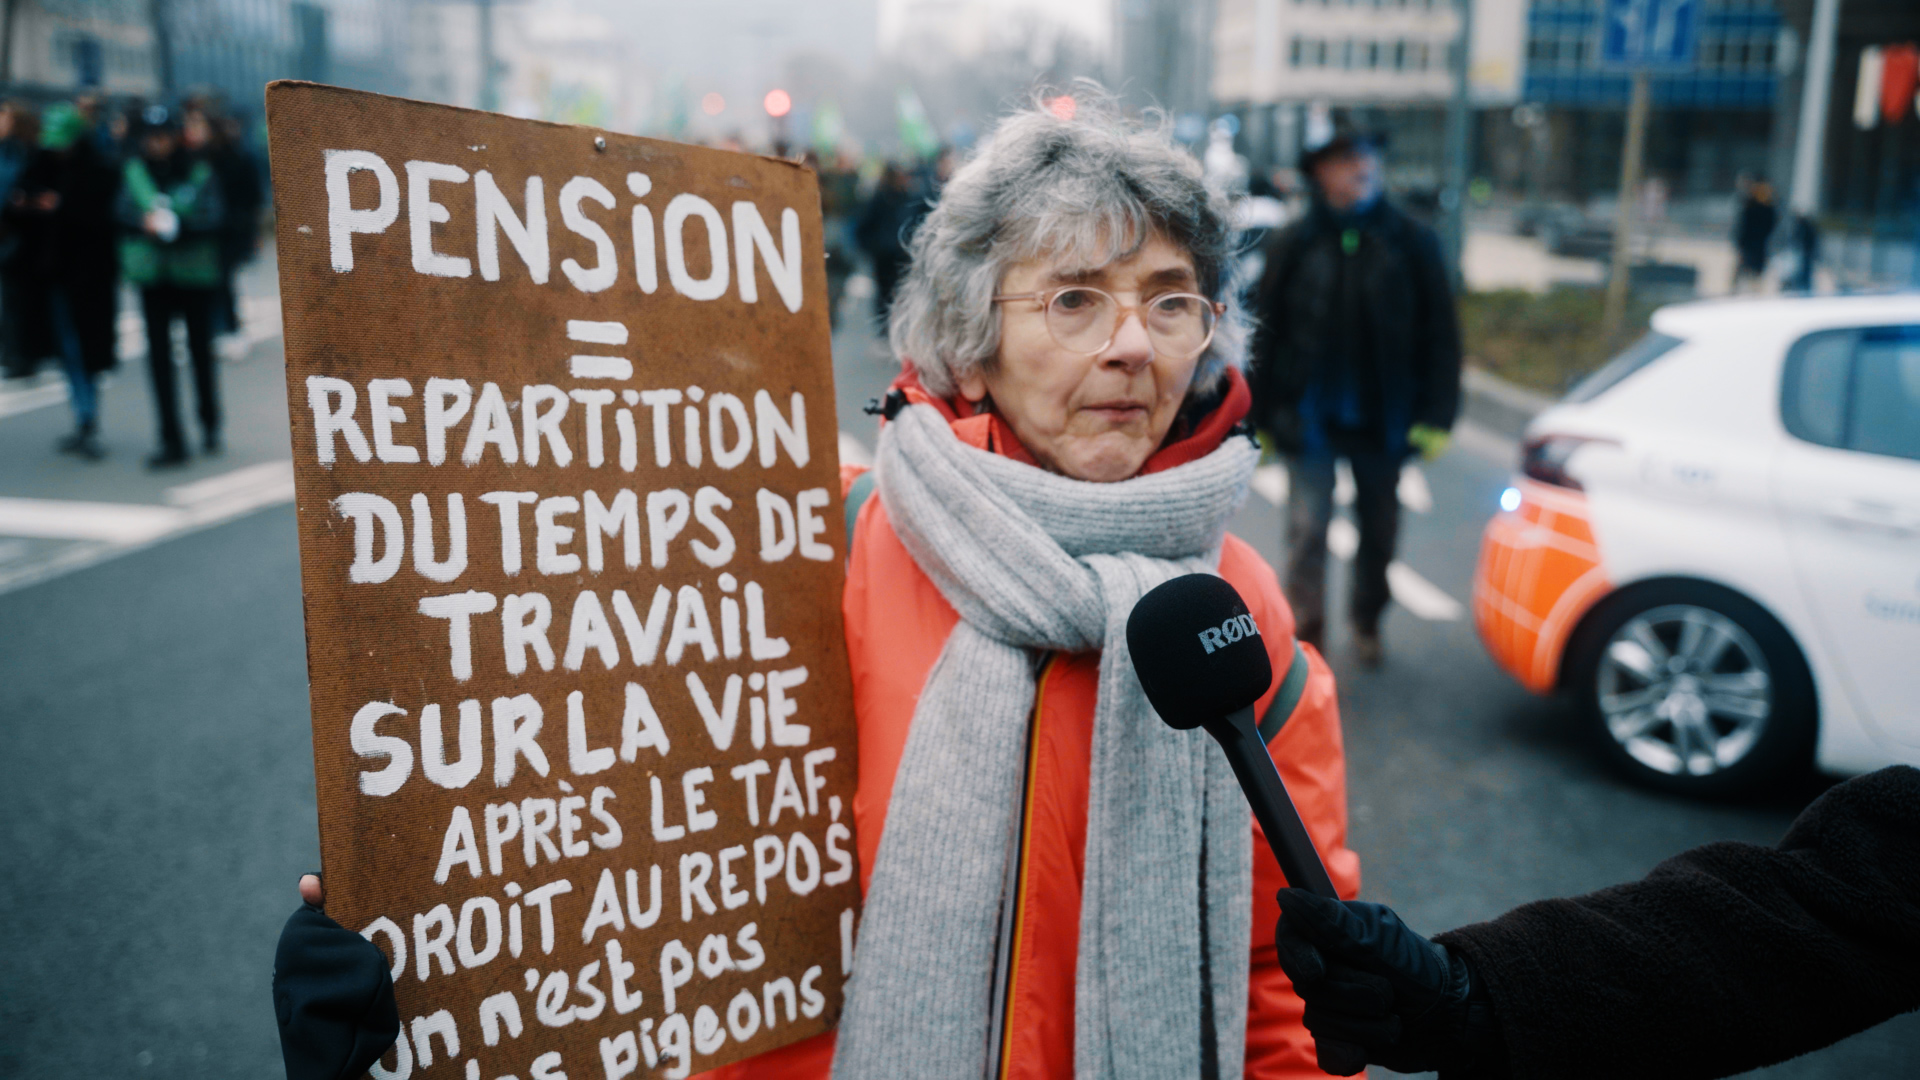 PENSiON
=
REPARTiTiON
DU TEMPS DE
TRAVAiL
SUR LA ViE
APRÈS LE TAF,
DROiT AU REPOS
On n'est pas
des pigeons !
RØDE